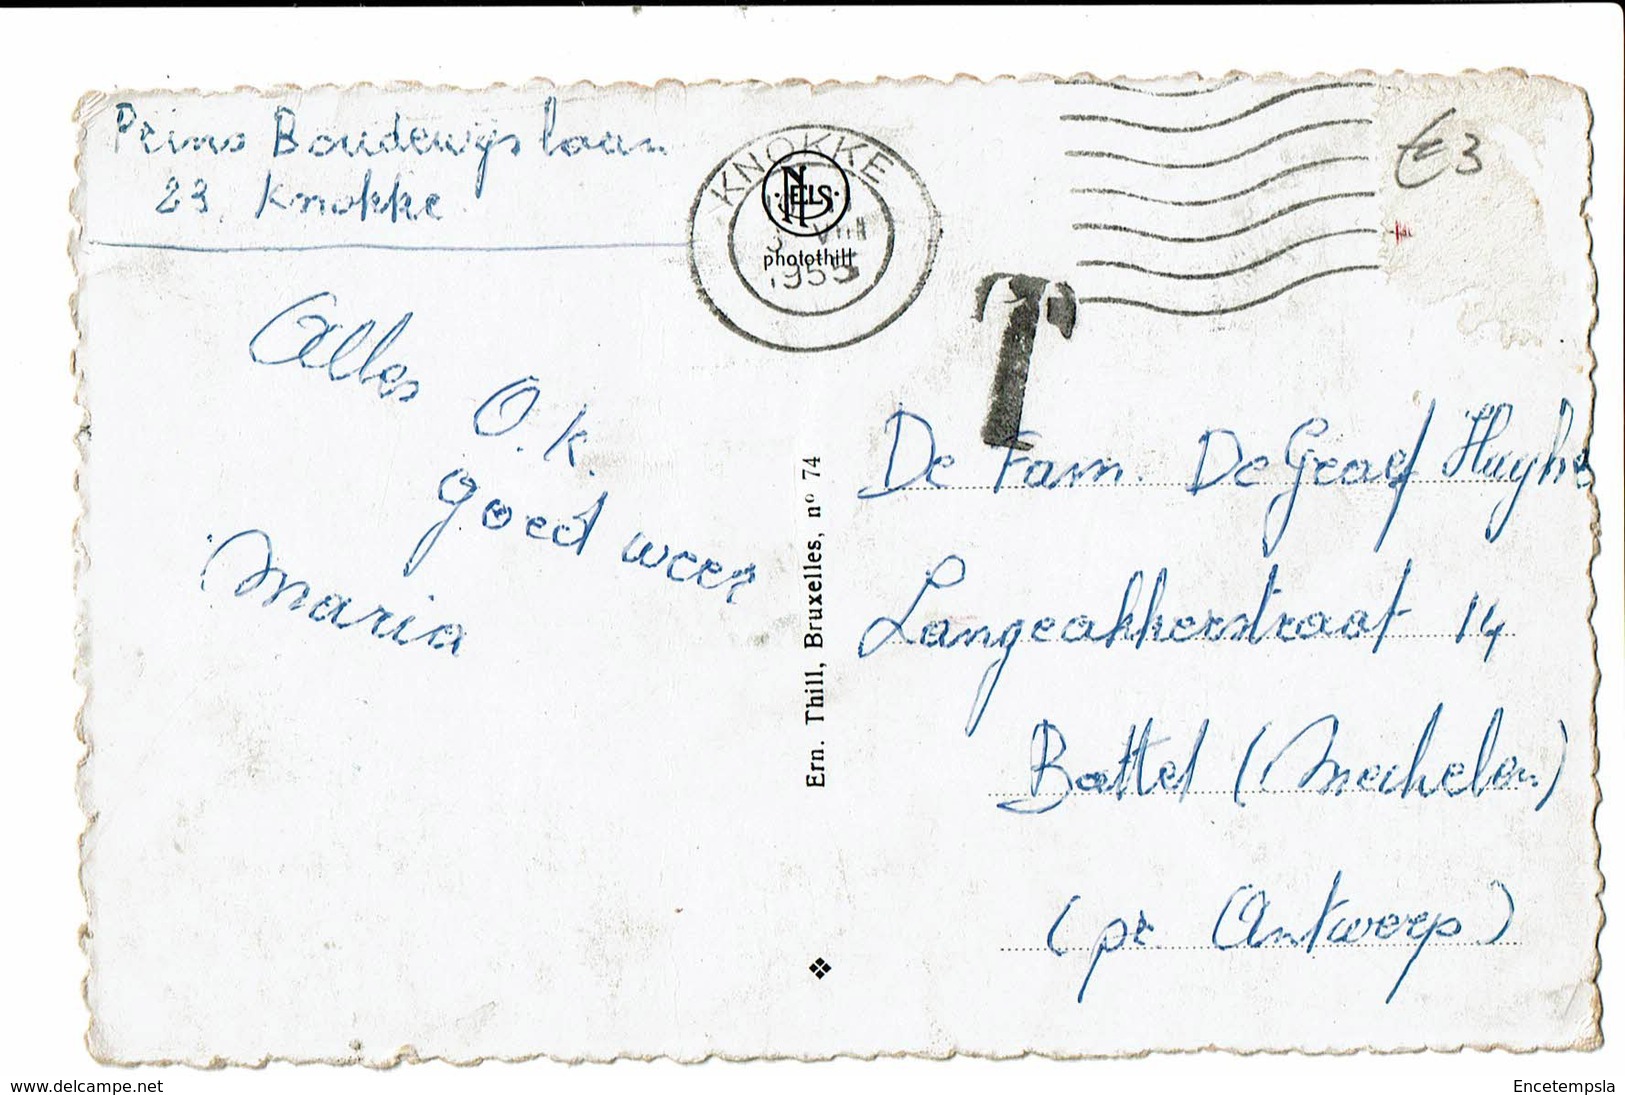 Prins Boudewijs laan
23 Knokke
Alles
O.K.
goed weer
Maria
KNOKKE
NELS
VIII
photothill
1955
T
€3
De Fam. De Graef Huyghe
Langeakkerstraat 14
Battel (Mechelen)
(pr Antwerp)
Ern. Thill, Bruxelles, nº 74
www.delcampe.net
Encetempsla